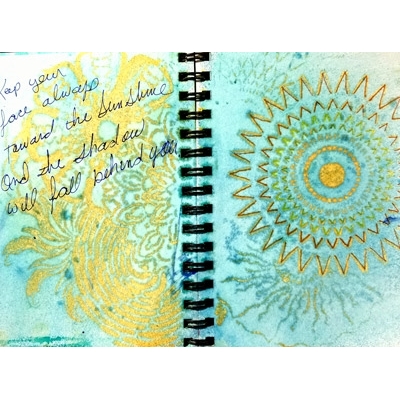 Keep your
face always
toward the Sunshine
And the shadow
will fall behind you